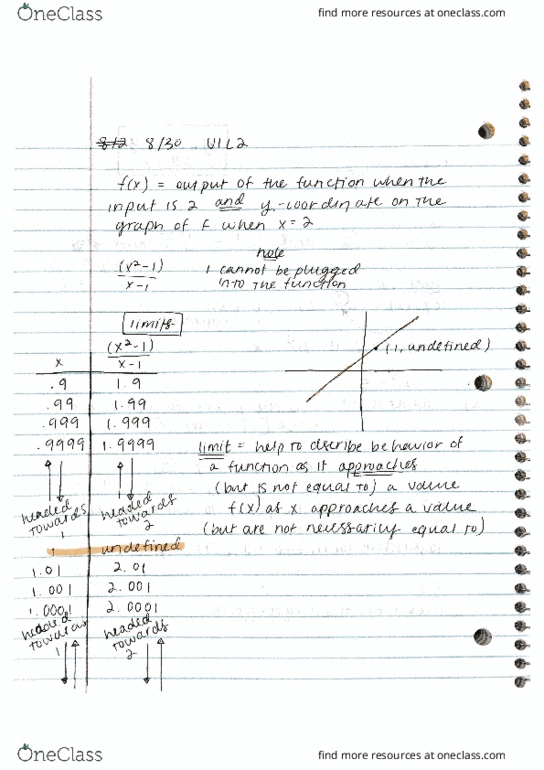 OneClass
find more resources at oneclass.com
8/2 8/30 U1L2
f(x) = output of the function when the
input is 2 and y-coordinate on the
graph of f when x=2
note
(x²-1)
x-1
1 cannot be plugged
into the function
limits
x
(x²-1)
x-1
.9 1.9
.99 1.99
.999 1.999
.9999 1.9999
headed towards 1
headed towards 2
1 undefined
1.01 2.01
1.001 2.001
1.0001 2.0001
headed towards 1
headed towards 2
(1, undefined)
limit = help to dscribe behavior of
a function as it approaches
(but is not equal to) a value
f(x) as x approaches a value
(but are not necessarily equal to)
OneClass
find more resources at oneclass.com